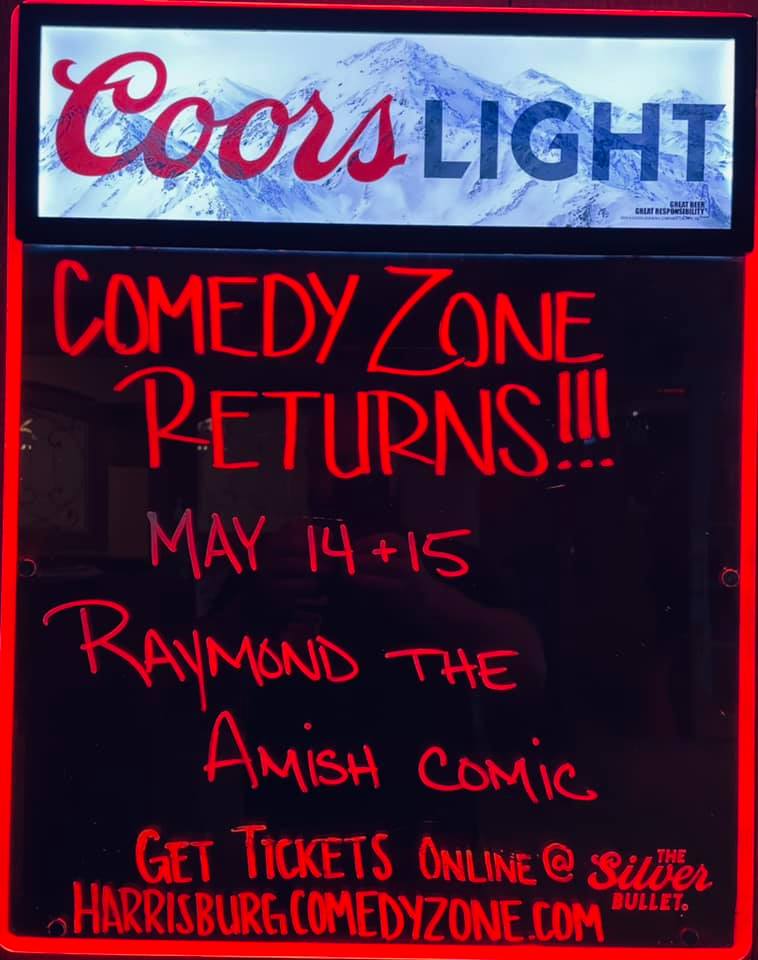 Coors LIGHT
GREAT BEER
GREAT RESPONSIBILITY
COMEDY ZONE
RETURNS!!!
MAY 14+15
RAYMOND THE
AMISH COMIC
GET TICKETS ONLINE @
HARRISBURGCOMEDYZONE.COM
THE
Silver
BULLET.